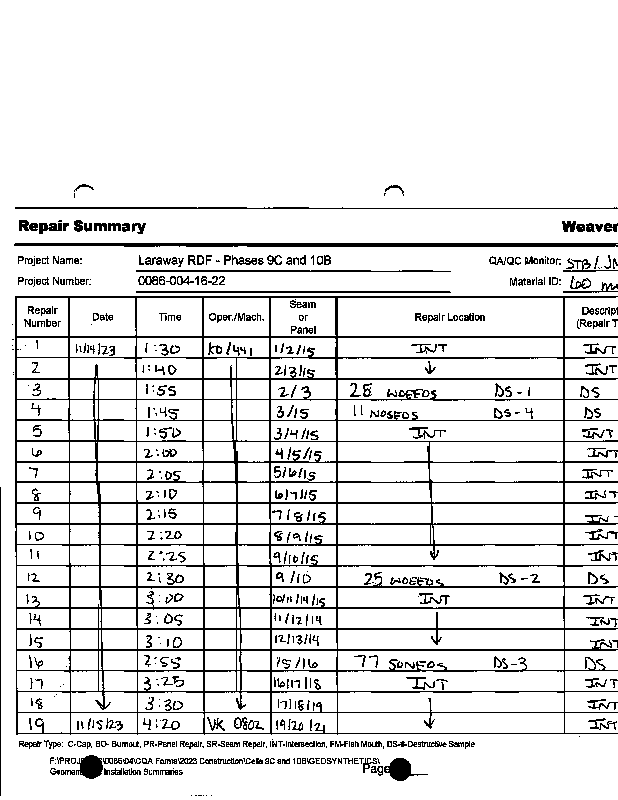 Repair Summary Weaver
Project Name: Laraway RDF - Phases 9C and 10B QA/QC Monitor: STB / JN
Project Number: 0086-004-16-22 Material ID: 60 m
Repair Number Date Time Oper./Mach. Seam or Panel Repair Location Descript (Repair T
1 11/14/23 1:30 KD/441 1/2/15 INT INT
2 1:40 2/3/15 INT
3 1:55 2/3 28 WOEEOS DS-1 DS
4 1:45 3/15 11 NOSEOS DS-4 DS
5 1:50 3/4/15 INT INT
6 2:00 4/5/15 INT
7 2:05 5/6/15 INT
8 2:10 6/7/15 INT
9 2:15 7/8/15 IN
10 2:20 8/9/15 INT
11 2:25 9/10/15 INT
12 2:30 9/10 25 WOEEOS DS-2 DS
13 3:00 10/11/14/15 INT INT
14 3:05 11/12/14 INT
15 3:10 12/13/14 INT
16 2:55 15/16 77 SONEOS DS-3 DS
17 3:25 16/17/18 INT INT
18 3:30 17/18/19 INT
19 11/15/23 4:20 VK 0802 19/20/21 INT
Repair Type: C-Cap, BO- Burnout, PR-Panel Repair, SR-Seam Repair, INT-Intersection, FM-Fish Mouth, DS-#-Destructive Sample
F:\PROJ \0086\04\CQA Forms\2023 Construction\Cells 9C and 10B\GEOSYNTHETICS\
Geomem Installation Summaries Page